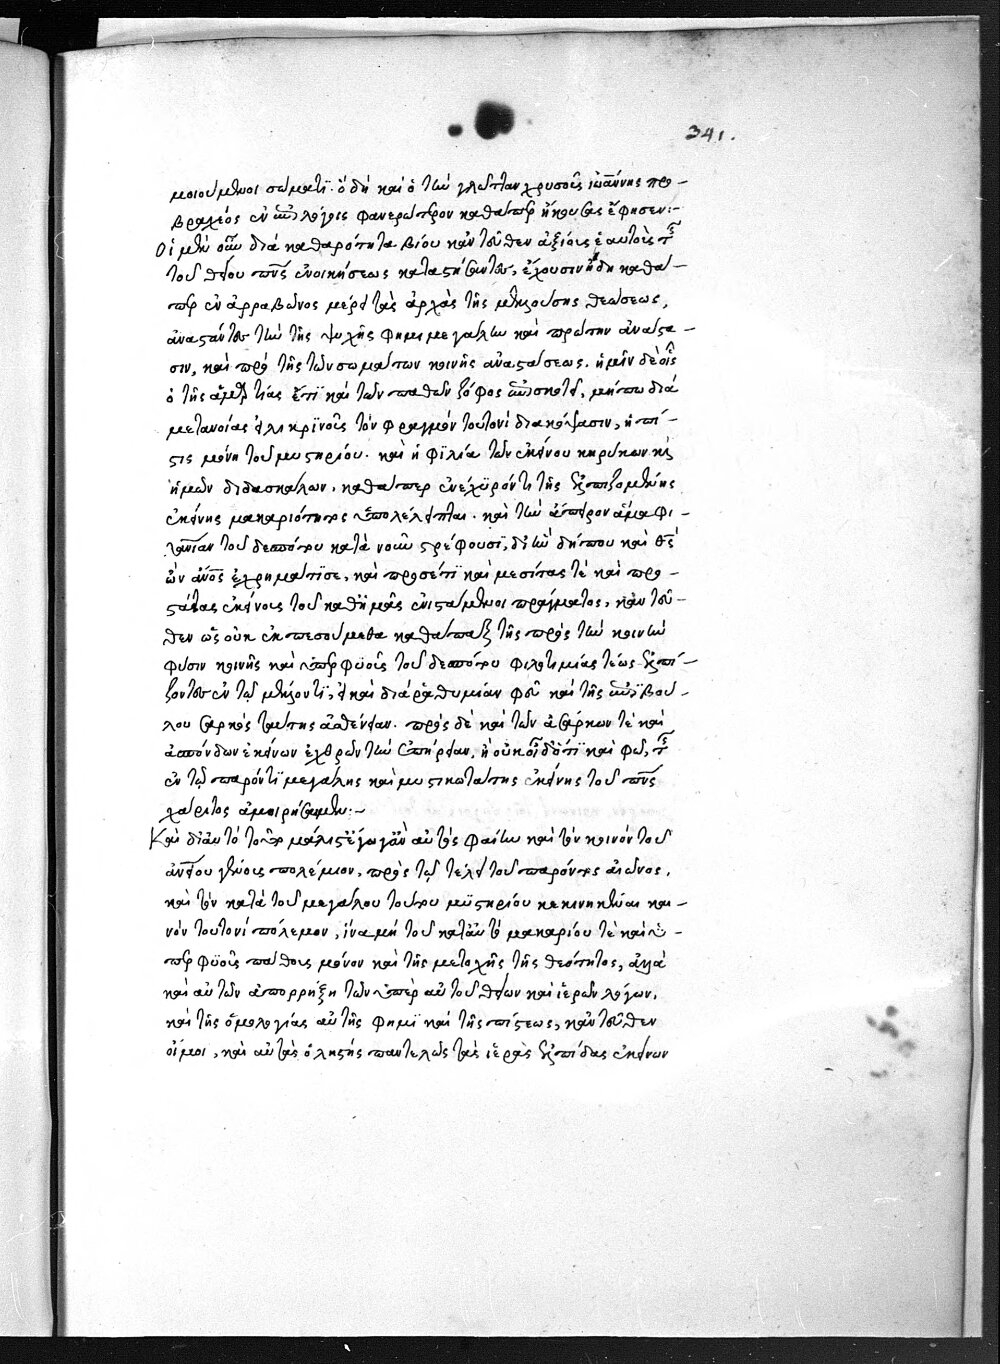 341.
μοιούμενοι σώματι· ὁ δὴ καὶ ὁ τὴν γλῶτταν χρυσοῦς ἰωάννης πο-
βραχέος ἐν λόγοις φανερώτερον καθάπερ ἤκουσας ἔφησεν:-
Οἱ μὲν οὖν διὰ καθαρότητα βίου κἀντεῦθεν ἀξίους ἑαυτοὺς τῆς
τοῦ θείου πνς ἐνοικήσεως καταστήσαντες, ἔχουσιν ἤδη καθά-
περ ἐν ἀρραβῶνος μέρει τὰς ἀρχὰς τῆς μελλούσης θεώσεως,
ἀναστάντες τὴν τῆς ψυχῆς φημι μεγάλην καὶ πρώτην ἀνάστα-
σιν, καὶ πρὸ τῆς τῶν σωμάτων κοινῆς ἀναστάσεως. ἡμῖν δὲ οἷς
ὁ τῆς ἁμαρτίας ἔτι καὶ τῶν παθῶν ζόφος ἐπισκοτεῖ, μήπω διὰ
μετανοίας εἰλικρινοῦς τὸν φραγμὸν τουτονὶ διακόψασιν, ἡ πί-
στις μόνη τοῦ μυστηρίου. καὶ ἡ φιλία τῶν ἐκείνου κηρύκων κ(αὶ)
ἡμῶν διδασκάλων, καθάπερ ἐνέχυρόν τι τῆς ἐλπιζομένης
ἐκείνης μακαριότητος ὑπολέλειπται. καὶ τὴν ἄπειρον ἅμα φι-
λανίαν τοῦ δεσπότου κατὰ νοῦν στρέφουσι, δι' ἣν δήπου καὶ θς
ὢν ἄνος ἐχρημάτισε, καὶ προσέτι καὶ μεσίτας τὲ καὶ προ-
στάτας ἐκείνους τοῦ καθ' ἡμᾶς ἐνισταμένοι πράγματος, κἀντεῦ-
θεν ὡς οὐκ ἐκπεσούμεθα καθάπαξ τῆς πρὸς τὴν κοινὴν
φύσιν κοινῆς καὶ ὑπερφυοῦς τοῦ δεσπότου φιλοτιμίας τέως ἐλπί-
ζοντες ἐν τῷ μέλλοντι, εἰ καὶ διὰ ῥαθυμίαν φεῦ καὶ τῆς ἐπιβού-
λου σαρκὸς ταύτης ἀσθένειαν. πρὸς δὲ καὶ τῶν ἀσάρκων τὲ καὶ
ἀσπόνδων ἐκείνων ἐχθρῶν τὴν ἐπήρειαν, ἢ οὐκ οἶδ' ὅτι καὶ φῶ, τῆς
ἐν τῷ παρόντι μεγάλης καὶ μυστικωτάτης ἐκείνης τοῦ πνς
χάριτος ἀμοιρήσαιμεν:-
Καὶ διὰ τοῦτο τοίνυν μάλιστ' ἔγωγ' ἂν αὐτὸς φαίην καὶ τὸν κοινὸν τοῦ
ἀνίου γένους πολέμιον, πρὸς τῷ τέλει τοῦ παρόντος αἰῶνος,
καὶ τὸν κατὰ τοῦ μεγάλου τούτου μυστηρίου κεκινηκέναι και-
νὸν τουτονὶ πόλεμον, ἵνα μὴ τοῦ κατ' αὐτὸ μακαρίου τὲ καὶ ὑ-
περφυοῦς πάθους μόνον καὶ τῆς μετοχῆς τῆς θεότητος, ἀλλὰ
καὶ αὐτῶν ἀπορρήξῃ τῶν ὑπὲρ αὐτοῦ θείων καὶ ἱερῶν λόγων,
καὶ τῆς ὁμολογίας αὐτῆς φημὶ καὶ τῆς πίστεως, κἀντεῦθεν
οἴμοι, καὶ αὐτὰς ὁ λῃστὴς παντελῶς τὰς ἱερὰς ἐλπίδας ἐκείνων